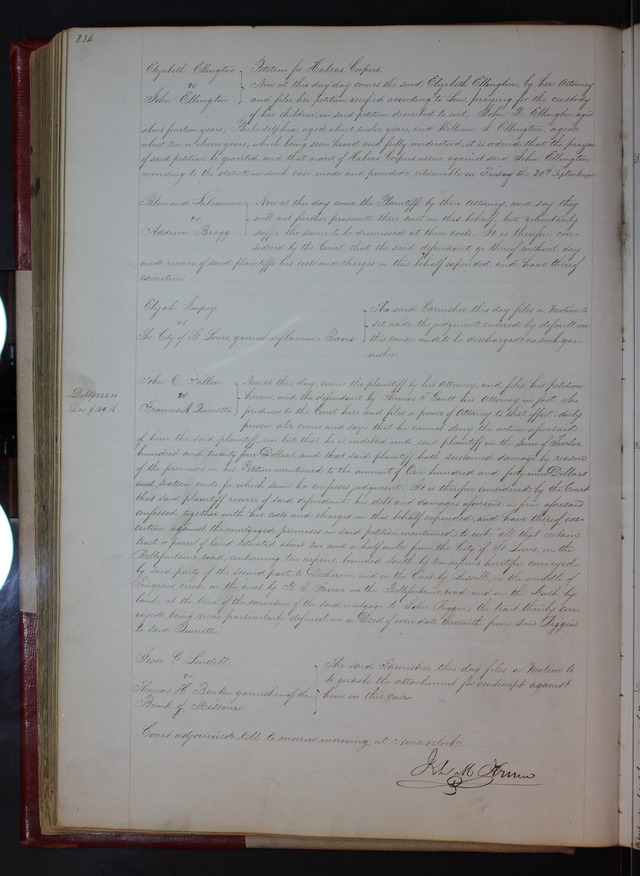 234
Elizabeth Ellington } Petition for Habeas Corpus.
vs Now at this day comes the said Elizabeth Ellington, by her Attorney
John Ellington and files her petition verified according to law, praying for the custody
of her children in said petition described to wit. John R. Ellington aged
about fourteen years, Philadelphia, aged about twelve years and William S. Ellington, aged
about ten or eleven years, which being seen heard and fully understood, it is ordered that the prayer
of said petition be granted, and that a writ of Habeas Corpus issue against said John Ellington
according to the statute in such case made and provided, returnable on Friday the 20th September
Now at this day come the Plaintiffs by their Attorney, and say they
vs will not further prosecute their suit in this behalf, but voluntarily
Addison Bragg suffer the same to be dismissed at their costs. It is therefore con-
sidered by the Court that the said defendant go thereof without day
and recover of said plaintiffs his costs and charges in this behalf expended, and have thereof
execution
Elijah The said Garnishee this day files a Motion to
vs set aside the judgment entered by default in
The City of St Louis, garnishee of this cause, and to be discharged as such gar-
nishee
John O. Now at this day, comes the plaintiff by his Attorney, and files his petition
vs herein, and the defendant by Thomas T. Gantt his Attorney in fact, who
Francis produces to the Court here and files a power of Attorney to that effect, duly
proven also comes and says that he cannot deny the action aforesaid
of him the said plaintiff nor but that he is indebted unto said plaintiff in the sum of Twelve
hundred and twenty four Dollars, and that said plaintiff hath sustained damage by reason
of the premises in his Petition mentioned to the amount of One hundred and fifty nine Dollars
and sixteen cents for which sum he confesses judgment. It is therefore considered by the Court
that said plaintiff recover of said defendant, his debt and damages aforesaid in form aforesaid
confessed together with his costs and charges in this behalf expended, and have thereof exe-
cution against the mortgaged premises in said petition mentioned to wit: all that certain
tract or parcel of land, situated about two and a half miles from the City of St Louis, on the
Bellefontaine road, containing ten arpens, bounded South by ten arpens heretofore conveyed
by said party of the second part to and on the East by in the middle of
creek, on the west by Farrar on the Bellefontaine road, and on the North by
land, at the time of the execution of the said mortgage to John Riggin, the tract thereby con-
veyed being more particularly defined in a Deed of even date therewith from said Riggin
to said
Jesse G. Lindell The said Garnishee this day files a Motion to
vs to quash the attachment for contempt against
Thomas H. Benton garnishee of the him in this case
Bank of Missouri
Court adjourned till to morrow morning at o'clock